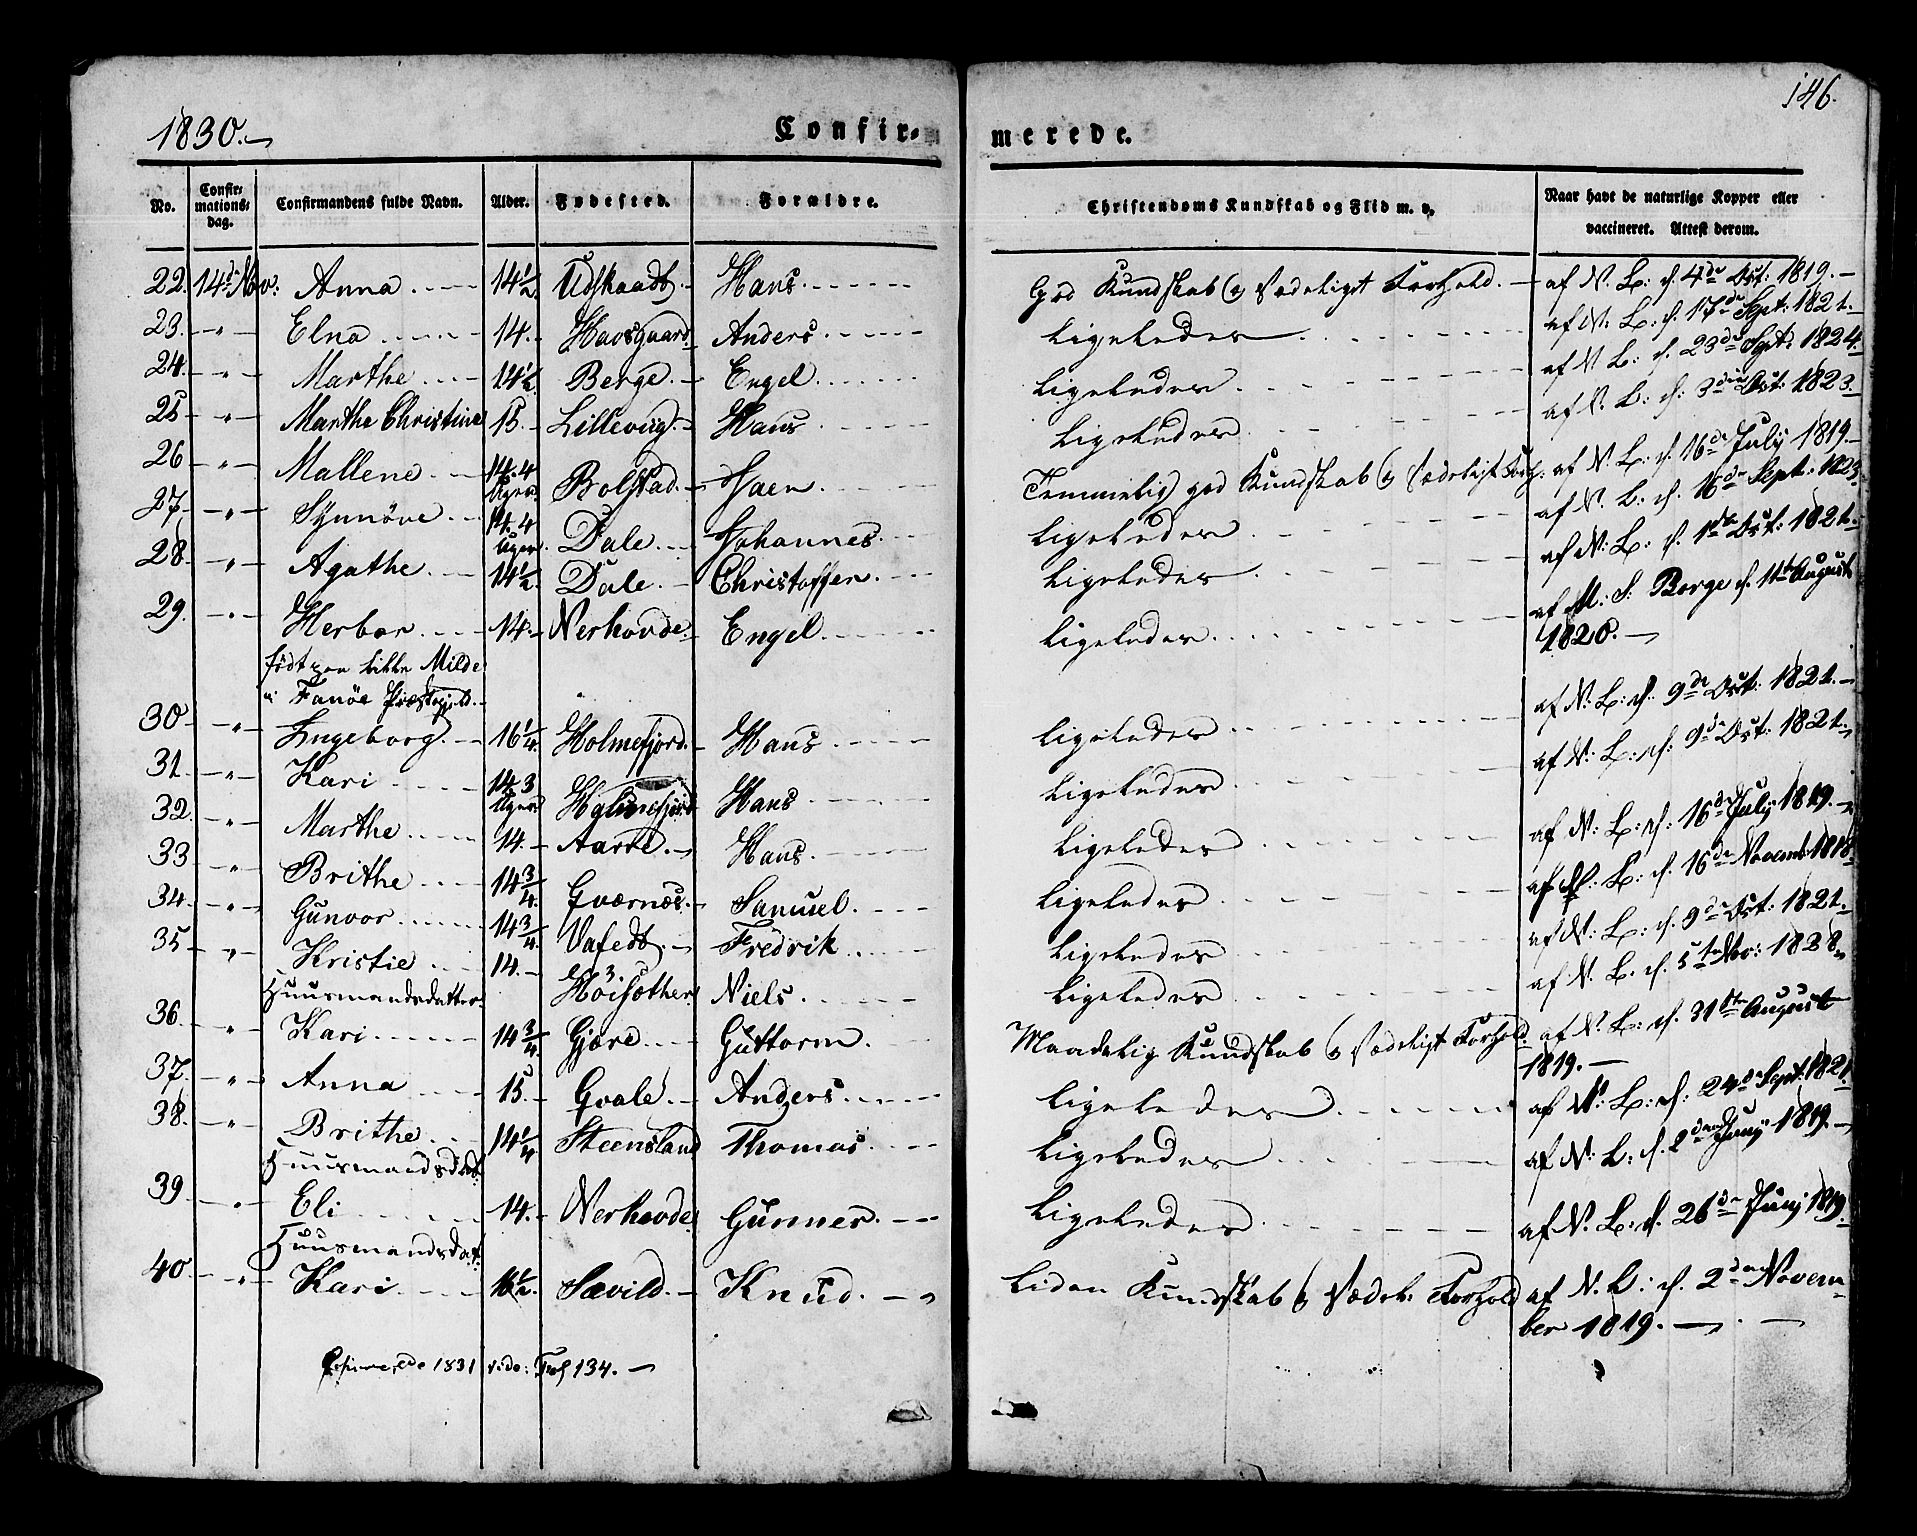 146.
1830.
Confir- merede.
No. Confirmations-dag. Confirmandens fulde Navn. Alder. Fødested. Forældre. Christendoms Kundskab og Flid m. v. Naar havt de naturlige Kopper eller vaccineret. Attest derom.
22. 14de Nov: Anna 14½ Udskaadt. Hans. God Kundskab og sædeligt Forhold. af N. B: d. 4de Oct: 1819.
23. " Elna 14. Havsgaard. Anders ligeledes af N: B: d. 17de Sept: 1821.
24. " Marthe 14½ Berge. Engel ligeledes af N. B: d. 23de Sept: 1824.
25 " Marthe Christine 15. Lillevüg. Hans ligeledes af N. B: d: 3die Oct: 1823.
26 " Mallene. 14. 4 Uger. Bolstad. Haen. Temmelig god Kundskab og sædeligt Forh. af N. B: d. 16de July 1819.
27. " Synnöve 14. 4 Uger. Dale. Johannes ligeledes af N. B: d. 16de Sept: 1823.
28. " Agathe. 14½. Dale. Christoffer. ligeledes af N: B: d. 1ste Oct: 1821.
29. " Herbor 14. Nerhovde. Engel. ligeledes af M: S: Berge d. 11te August
1820.
født paa Lille Milde
i Fanöe Præstegjeld.
30. " Ingeborg. 16¼. Holmefjord. Hans ligeledes af N. B: d: 9de Oct: 1821.
31. " Kari 14. 3 Uger. Holmefjord Hans ligeledes af N: B: d: 9de Oct: 1821.
32. " Marthe 14. Aarre. Hans. ligeledes af N: B: d: 16de July 1819.
33 " Brithe 14¾. Qværnæs. Samuel. ligeledes af B: d. 16de Novemb: 1818.
34. " Gunvor 14¾. Vafedt. Fredrik ligeledes af N: B: d. 9de Oct: 1821.
35. " Kristie 14. Höisæther Niels ligeledes af N. B. d. 5te Nov: 1828.
Huusmandsdatter.
36. " Kari 14¾. Gjære Guttorm. Maadelig Kundskab og sædeligt Forhold. af N. B: d. 31te August
1819.
37. " Anna 15. Qvale. Anders ligeledes af N: B: d: 24de Sept: 1821.
38. " Brithe. 14¼ Steensland Thomas ligeledes af N: B: d. 2den Juny 1819.
Huusmandsdat:
39. " Eli 14. Nerhovde Gunner. ligeledes af N. B: d. 26de Juny 1819.
Huusmandsdat:
40 " Kari 16½. Sævild. Knud. Liden Kundskab og sædel: Forhold af N. B: d. 2den Novem-
ber 1819.
1831 vide: Fol 134.